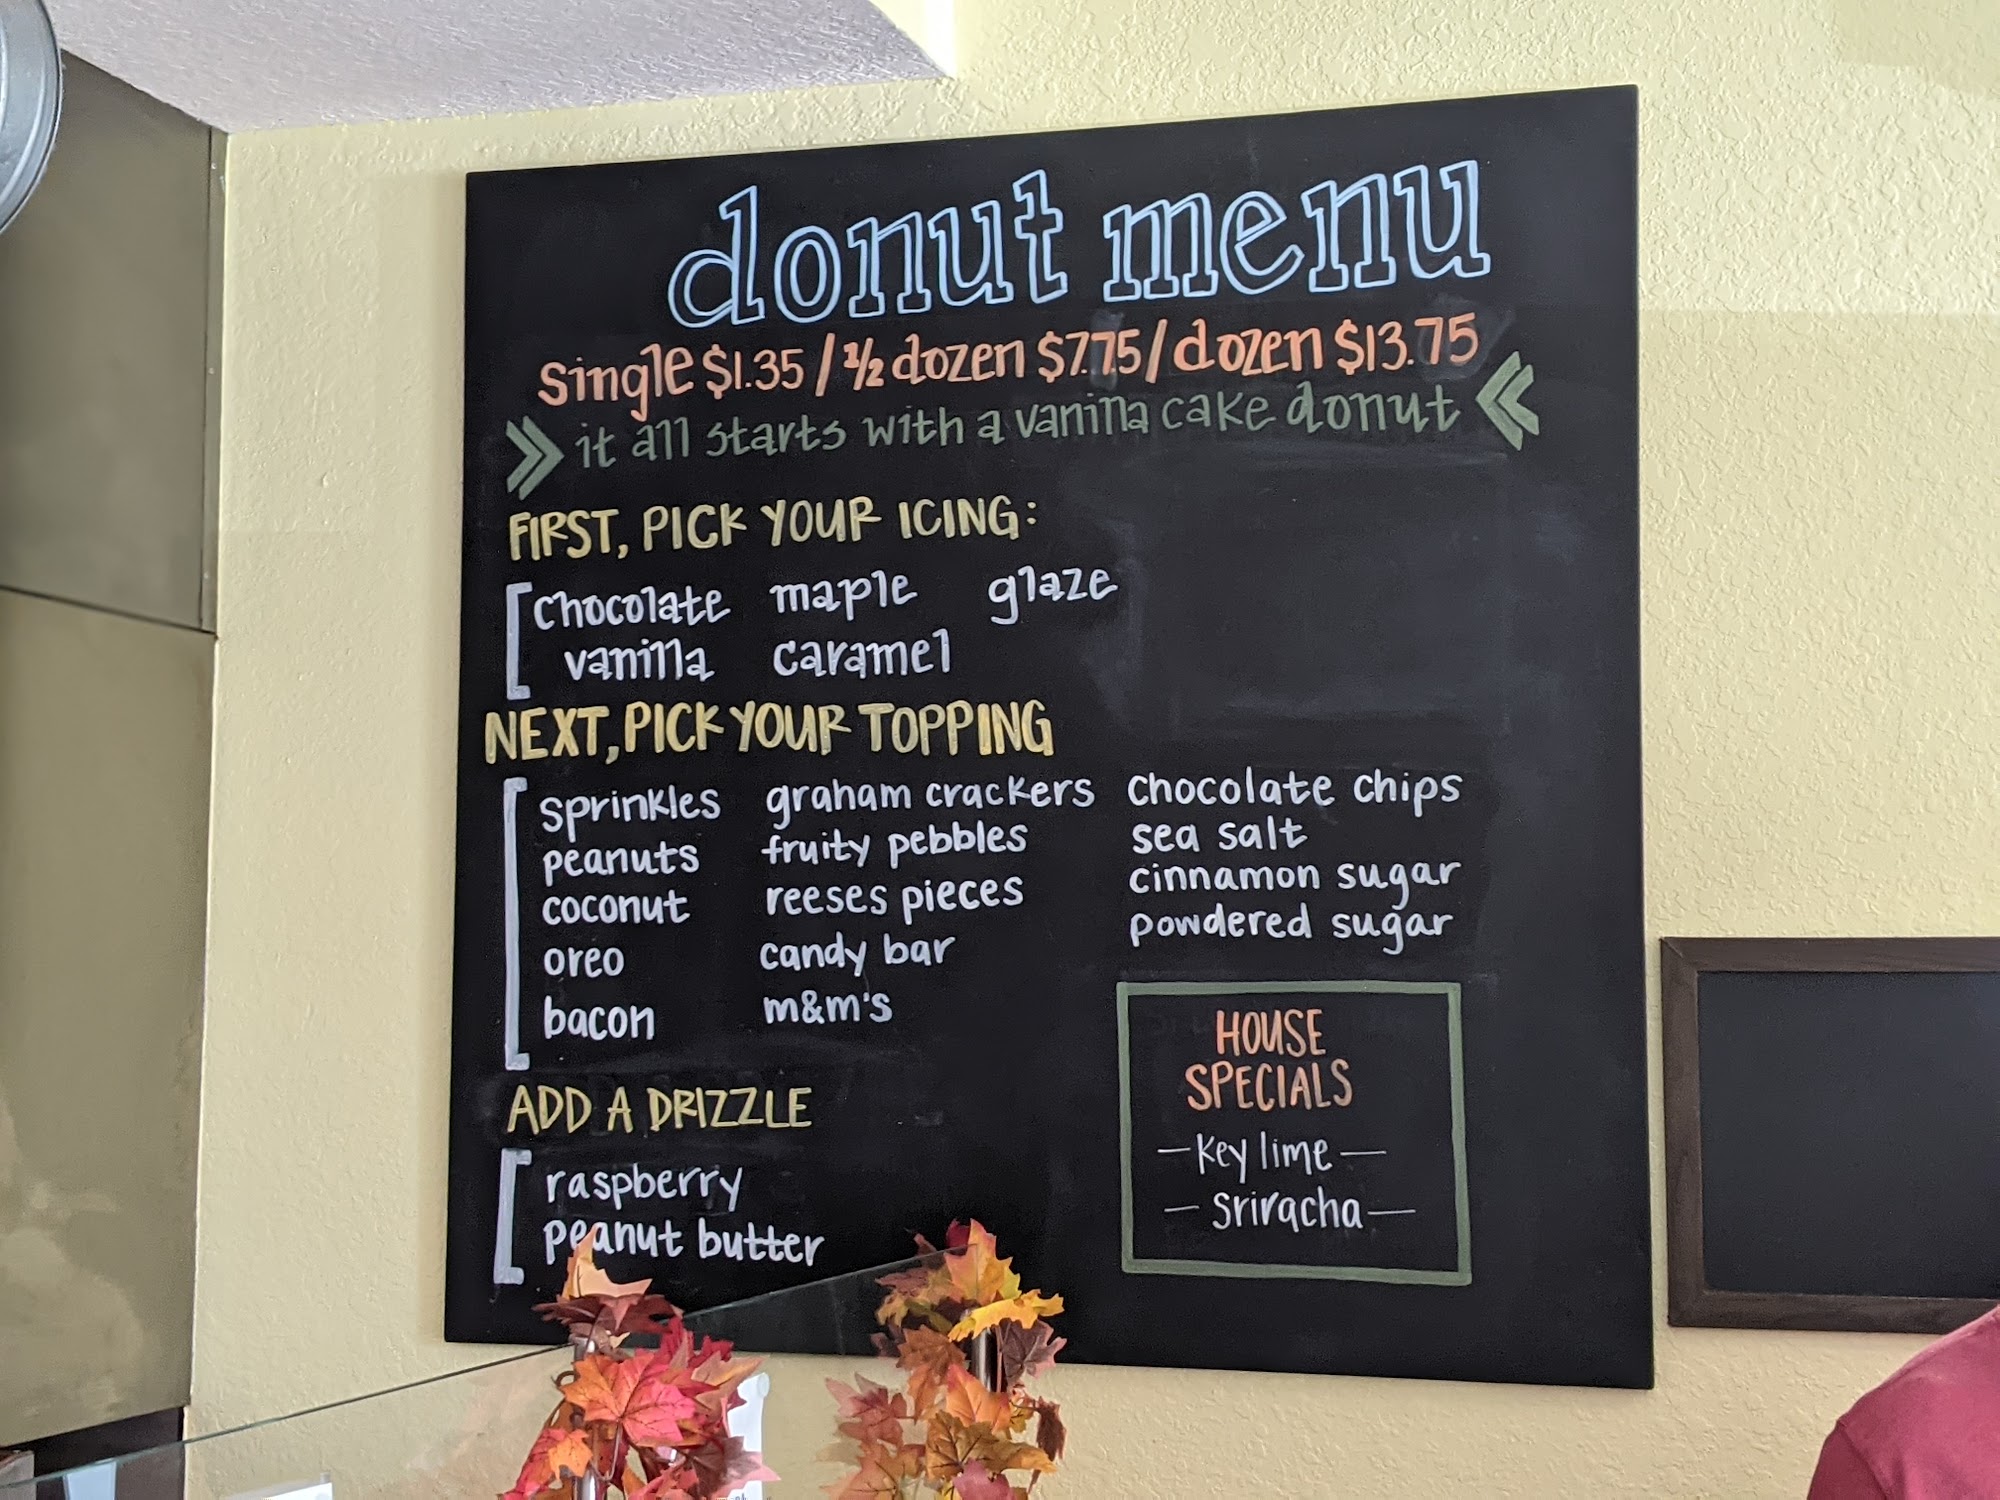 donut menu
single $1.35 / 1/2 dozen $7.75 / dozen $13.75
it all starts with a vanilla cake donut
FIRST, PICK YOUR ICING:
chocolate maple glaze
vanilla caramel
NEXT, PICK YOUR TOPPING
sprinkles graham crackers chocolate chips
peanuts fruity pebbles sea salt
coconut reeses pieces cinnamon sugar
oreo candy bar powdered sugar
bacon m&m's
ADD A DRIZZLE
raspberry
peanut butter
HOUSE
SPECIALS
- Key lime -
- Sriracha -